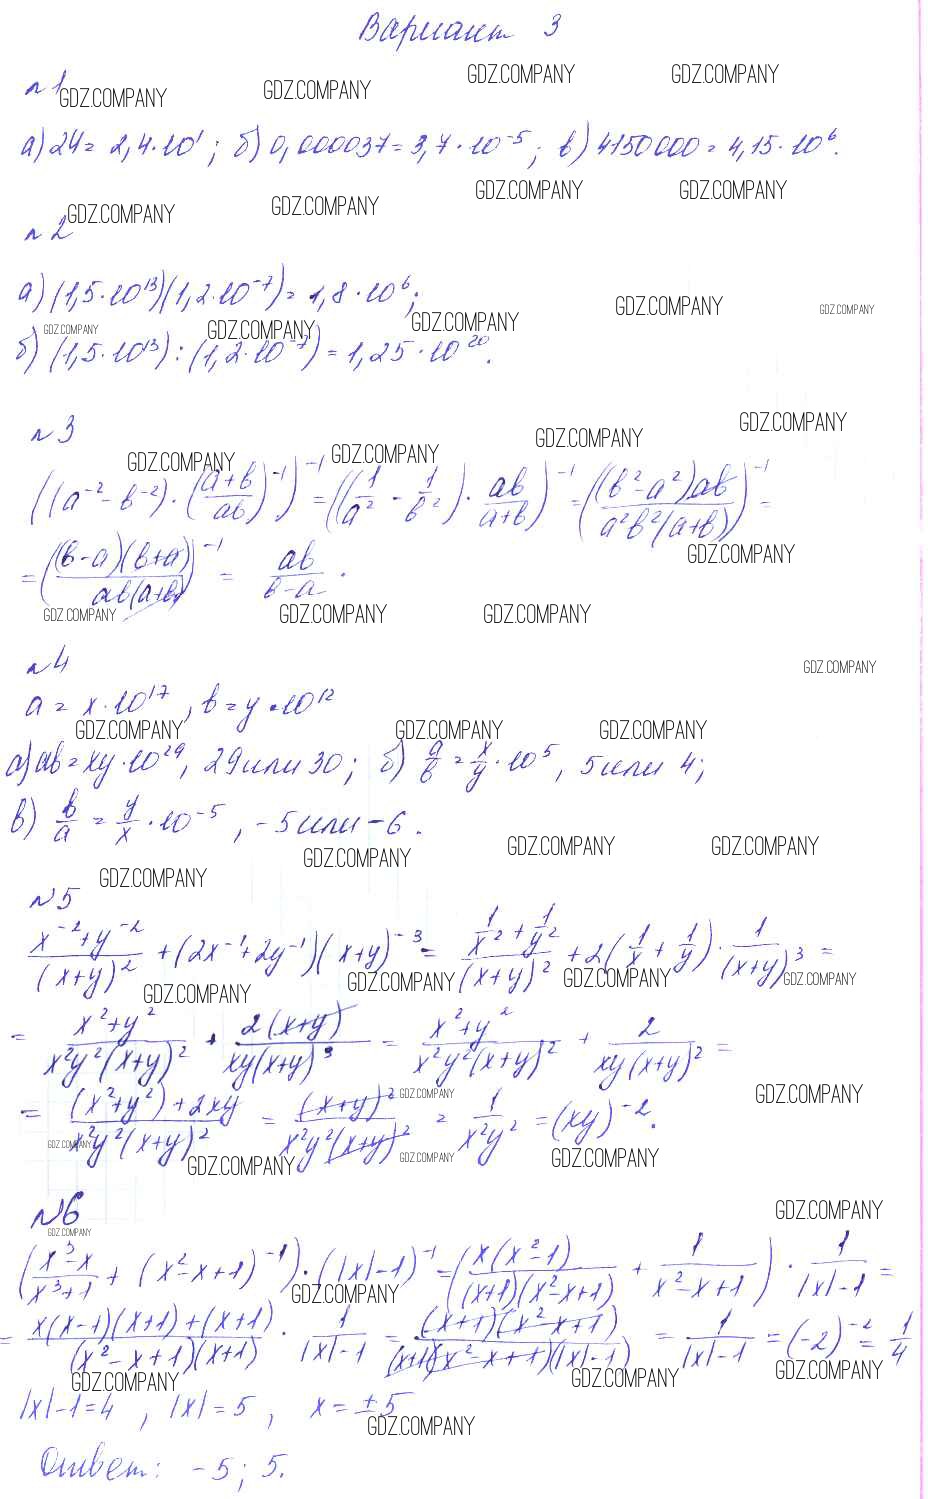 Вариант 3
n 1
GDZ.COMPANY GDZ.COMPANY GDZ.COMPANY GDZ.COMPANY
а) 24 = 2,4·10¹; б) 0,000037 = 3,7·10⁻⁵; в) 4150000 = 4,15·10⁶.
GDZ.COMPANY GDZ.COMPANY GDZ.COMPANY GDZ.COMPANY
n 2
а) (1,5·10¹³)(1,2·10⁻⁷) = 1,8·10⁶;
GDZ.COMPANY GDZ.COMPANY GDZ.COMPANY GDZ.COMPANY GDZ.COMPANY
б) (1,5·10¹³) : (1,2·10⁻⁷) = 1,25·10²⁰.
n 3
GDZ.COMPANY GDZ.COMPANY GDZ.COMPANY GDZ.COMPANY
((a⁻² - b⁻²)·((a+b)/ab)⁻¹)⁻¹ = ((1/a² - 1/b²)·ab/(a+b))⁻¹ = ((b²-a²)ab/(a²b²(a+b)))⁻¹ =
GDZ.COMPANY
= ((b-a)(b+a)/(ab(a+b)))⁻¹ = ab/(b-a).
GDZ.COMPANY GDZ.COMPANY GDZ.COMPANY
n 4
GDZ.COMPANY
a = x·10¹⁷, b = y·10¹²
GDZ.COMPANY GDZ.COMPANY GDZ.COMPANY
а) ab = xy·10²⁹, 29 или 30; б) a/b = x/y·10⁵, 5 или 4;
в) b/a = y/x·10⁻⁵, -5 или -6.
GDZ.COMPANY GDZ.COMPANY GDZ.COMPANY GDZ.COMPANY
N 5
(x⁻²+y⁻²)/(x+y)² + (2x⁻¹+2y⁻¹)(x+y)⁻³ = (1/x² + 1/y²)/(x+y)² + 2(1/x + 1/y)·1/(x+y)³ =
GDZ.COMPANY GDZ.COMPANY GDZ.COMPANY GDZ.COMPANY
= (x²+y²)/(x²y²(x+y)²) + 2(x+y)/(xy(x+y)³) = (x²+y²)/(x²y²(x+y)²) + 2/(xy(x+y)²) =
GDZ.COMPANY GDZ.COMPANY
= ((x²+y²)+2xy)/(x²y²(x+y)²) = (x+y)²/(x²y²(x+y)²) = 1/(x²y²) = (xy)⁻².
GDZ.COMPANY GDZ.COMPANY GDZ.COMPANY GDZ.COMPANY
N 6
GDZ.COMPANY GDZ.COMPANY
((x³-x)/(x³+1) + (x²-x+1)⁻¹)·(|x|-1)⁻¹ = (x(x²-1)/((x+1)(x²-x+1)) + 1/(x²-x+1))·1/(|x|-1) =
GDZ.COMPANY
= (x(x-1)(x+1)+(x+1))/((x²-x+1)(x+1))·1/(|x|-1) = (x+1)(x²-x+1)/((x+1)(x²-x+1)(|x|-1)) = 1/(|x|-1) = (-2)⁻² = 1/4
GDZ.COMPANY GDZ.COMPANY GDZ.COMPANY
|x|-1=4, |x|=5, x=±5
GDZ.COMPANY
Ответ: -5; 5.